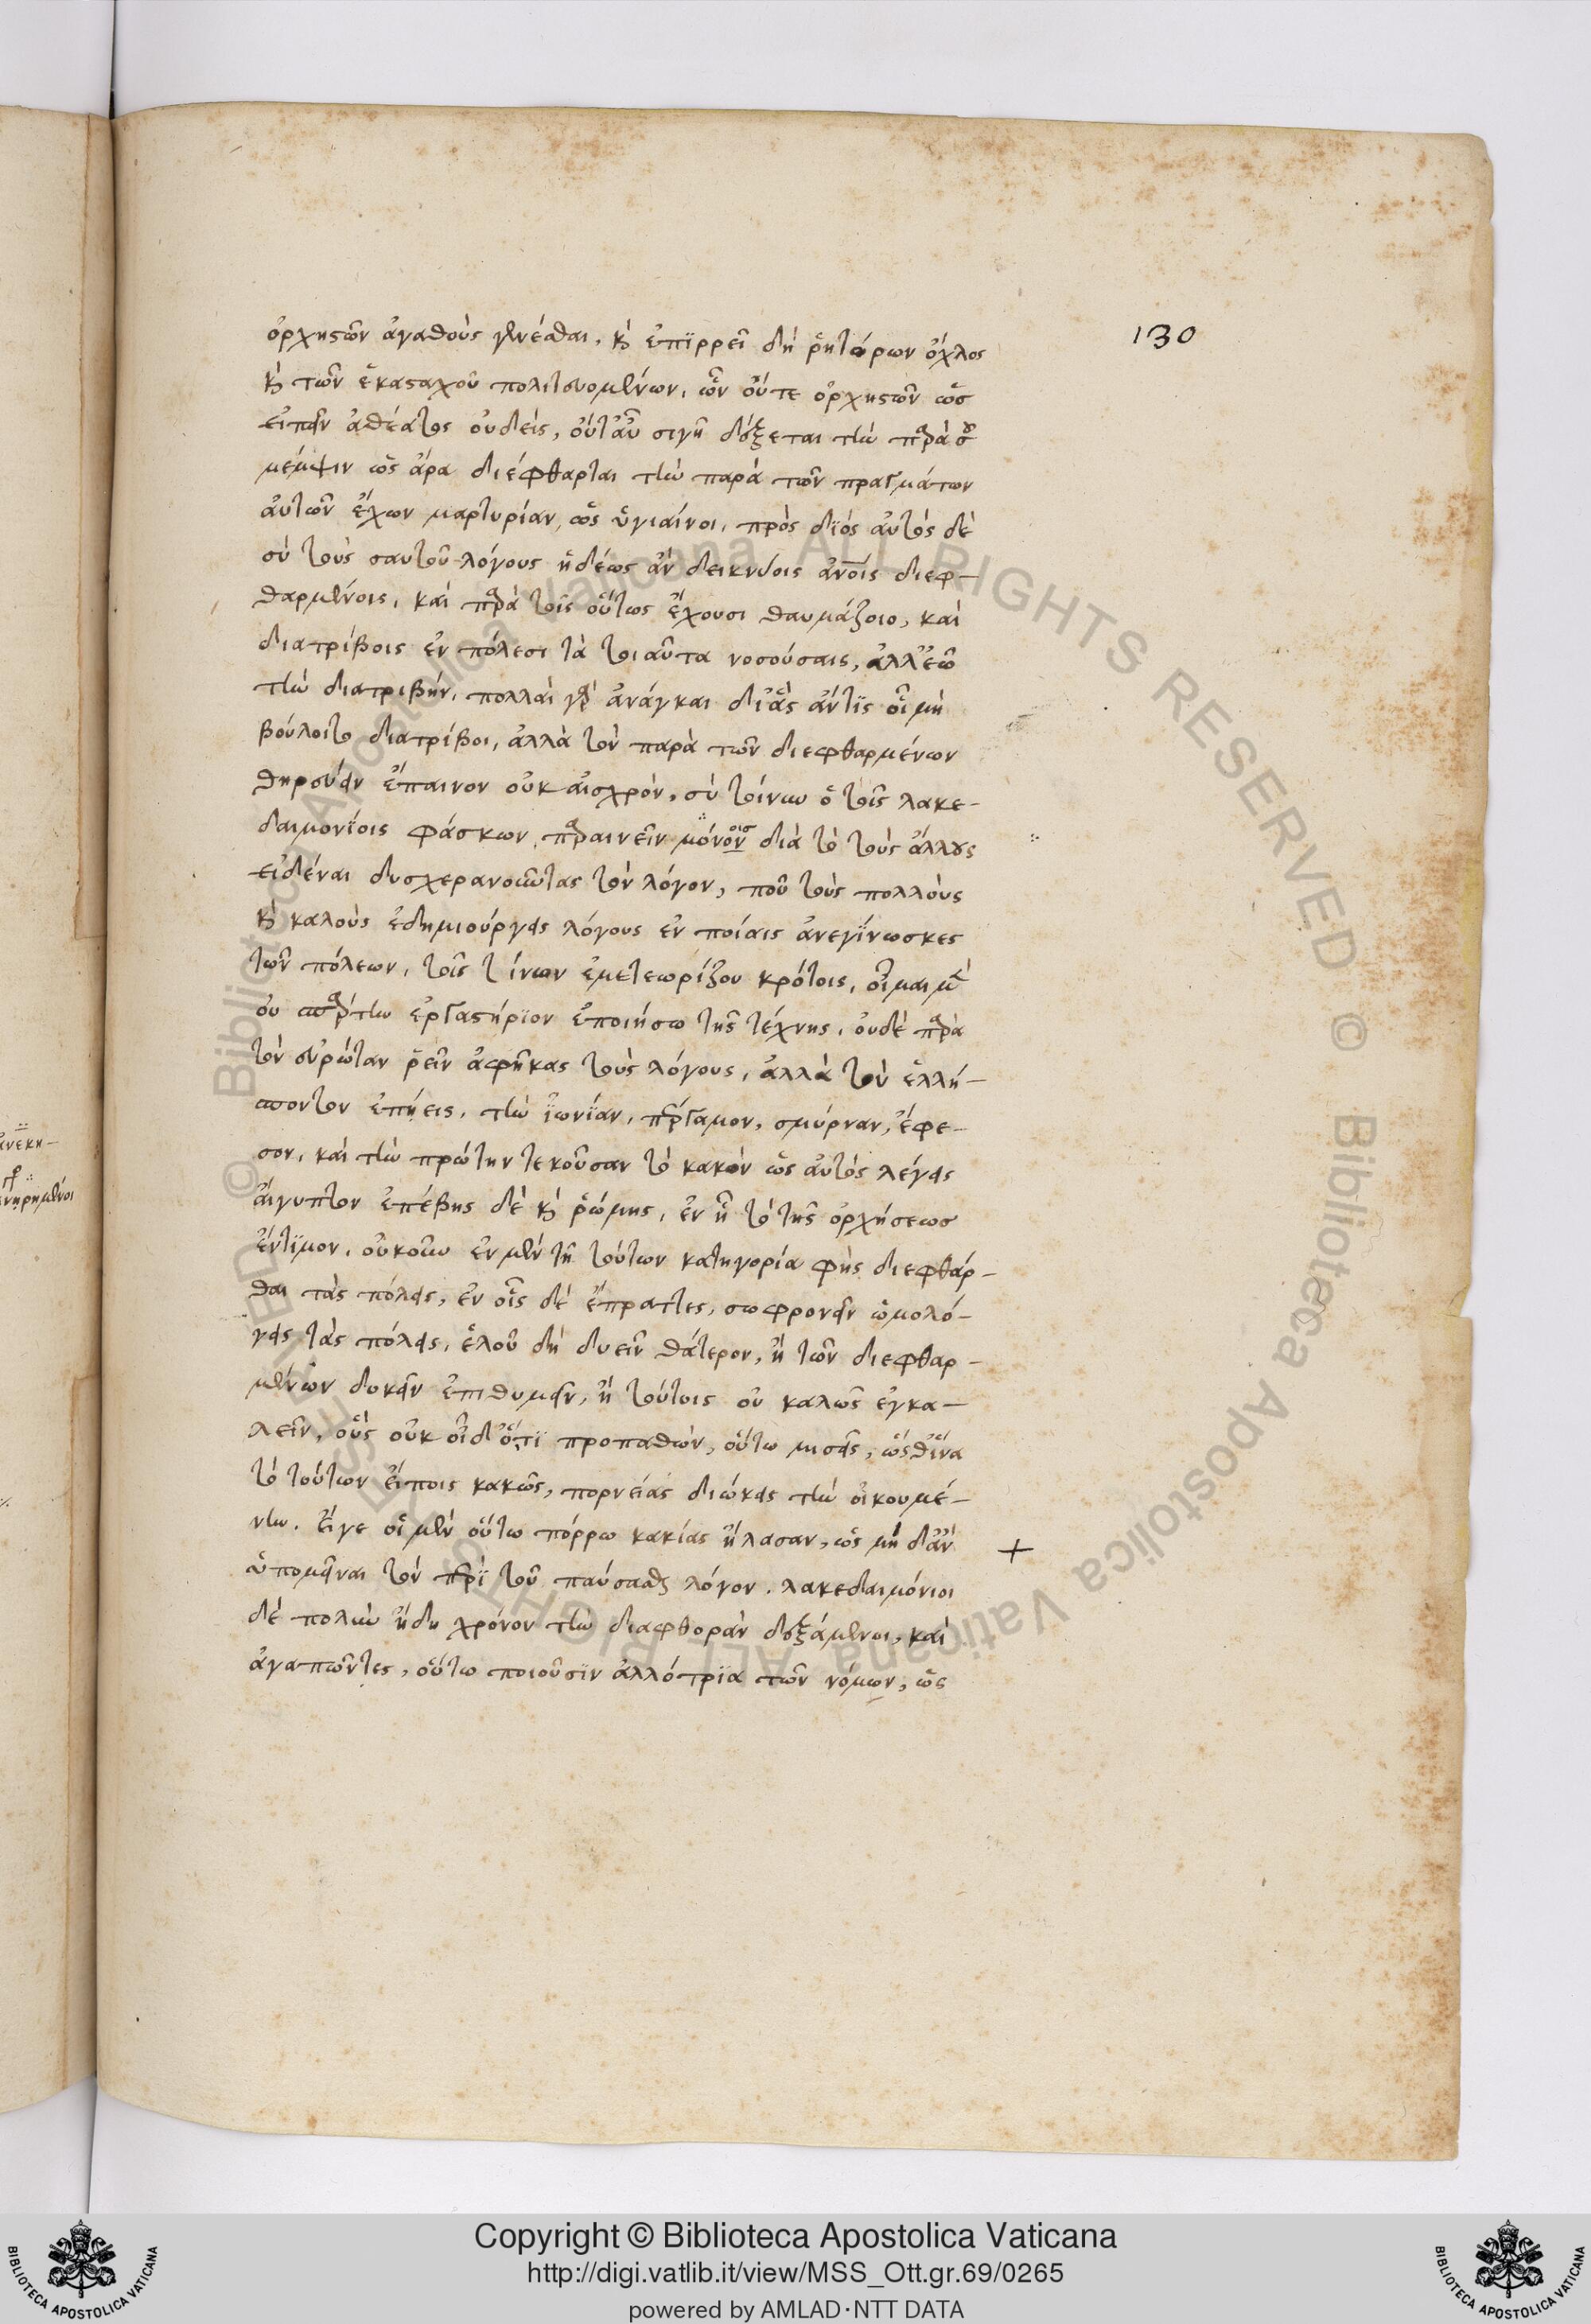 130
ὀρχηστῶν ἀγαθοὺς γενέσθαι, καὶ ἐπϊρρεῖ δὴ ῥητόρων ὄχλος
καὶ τῶν ἑκασταχοῦ πολιτευομένων, ὧν οὔτε ὀρχηστῶν ὡς
εἰπεῖν ἀθέατος οὐδείς, οὔτ' ἂν σιγῇ δέξεται τὴν παρὰ σοῦ
μέμψιν ὡς ἄρα διέφθαρται τὴν παρὰ τῶν πραγμάτων
αὐτῶν ἔχων μαρτυρίαν, ὡς ὑγιαίνοι, πρὸς διός αὐτὸς δὲ
σὺ τοὺς σαυτοῦ λόγους ἡδέως ἂν δεικνύοις ἀνοις διεφ-
θαρμένοις, καὶ παρὰ τοῖς οὕτως ἔχουσι θαυμάζοιο, καὶ
διατρίβοις ἐν πόλεσι τὰ τοιαῦτα νοσούσαις, ἀλλ' ἐῶ
τὴν διατριβήν, πολλαὶ γὰρ ἀνάγκαι δι' ἃς ἄν τϊς οἷ μὴ
βούλοιτο διατρίβοι, ἀλλὰ τὸν παρὰ τῶν διεφθαρμένων
θηρεύειν ἔπαινον οὐκ αἰσχρόν, σὺ τοίνυν ὁ τοῖς λακε-
δαιμονίοις φάσκων παραινεῖν μόνοις διὰ τὸ τοὺς ἄλλους
εἰδέναι δυσχερανοῦντας τὸν λόγον, ποῦ τοὺς πολλοὺς
καὶ καλοὺς ἐδημιούργεις λόγους ἐν ποίαις ἀνεγίνωσκες
τῶν πόλεων, τοῖς τίνων ἐμετεωρίζου κρότοις, οἶμαι μὲν
οὐ σπάρτην ἐργαστήριον ἐποιήσω τῆς τέχνης, οὐδὲ παρὰ
τὸν εὐρώταν ῥεῖν ἀφῆκας τοὺς λόγους, ἀλλὰ τὸν ἑλλή-
σποντον ἐπῄεις, τὴν ἰωνίαν, πέργαμον, σμύρναν, ἔφε-
σον, καὶ τὴν πρώτην τεκοῦσαν τὸ κακὸν ὡς αὐτὸς λέγεις
αἴγυπτον ἐπέβης δὲ καὶ ῥώμης, ἐν ᾗ τὸ τῆς ὀρχήσεως
ἔντϊμον, οὐκοῦν ἐν μὲν τῇ τούτων κατηγορία φῂς διεφθάρ-
θαι τὰς πόλεις, ἐν οἷς δὲ ἔπραττες, σωφρονεῖν ὡμολό-
γεις τὰς πόλεις, ἑλοῦ δὴ δυεῖν θάτερον, ἢ τῶν διεφθαρ-
μένων δοκεῖν ἐπιθυμεῖν, ἢ τούτοις οὐ καλῶς ἐγκα-
λεῖν, οὓς οὐκ οἶδ' ὅ,τϊ προπαθών, οὕτω μισεῖς, ὥσθ' ἵνα
τὸ τούτων εἴποις κακῶς, πορνείας διώκεις τὴν οἰκουμέ-
νην. εἴγε οἱ μὲν οὕτω πόρρω κακίας ἤλασαν, ὡς μηδ' ἂν
ὑπομεῖναι τὸν περὶ τοῦ παύσασθαι λόγον. λακεδαιμόνιοι
δὲ πολὺν ἤδη χρόνον τὴν διαφθορὰν δεξάμενοι, καὶ
ἀγαπῶντες, οὕτω ποιοῦσϊν ἀλλότρϊα τῶν νόμων, ὡς
+
ἀνεκη-
Copyright © Biblioteca Apostolica Vaticana
http://digi.vatlib.it/view/MSS_Ott.gr.69/0265
powered by AMLAD·NTT DATA
BIBLIOTECA APOSTOLICA VATICANA
BIBLIOTECA APOSTOLICA VATICANA